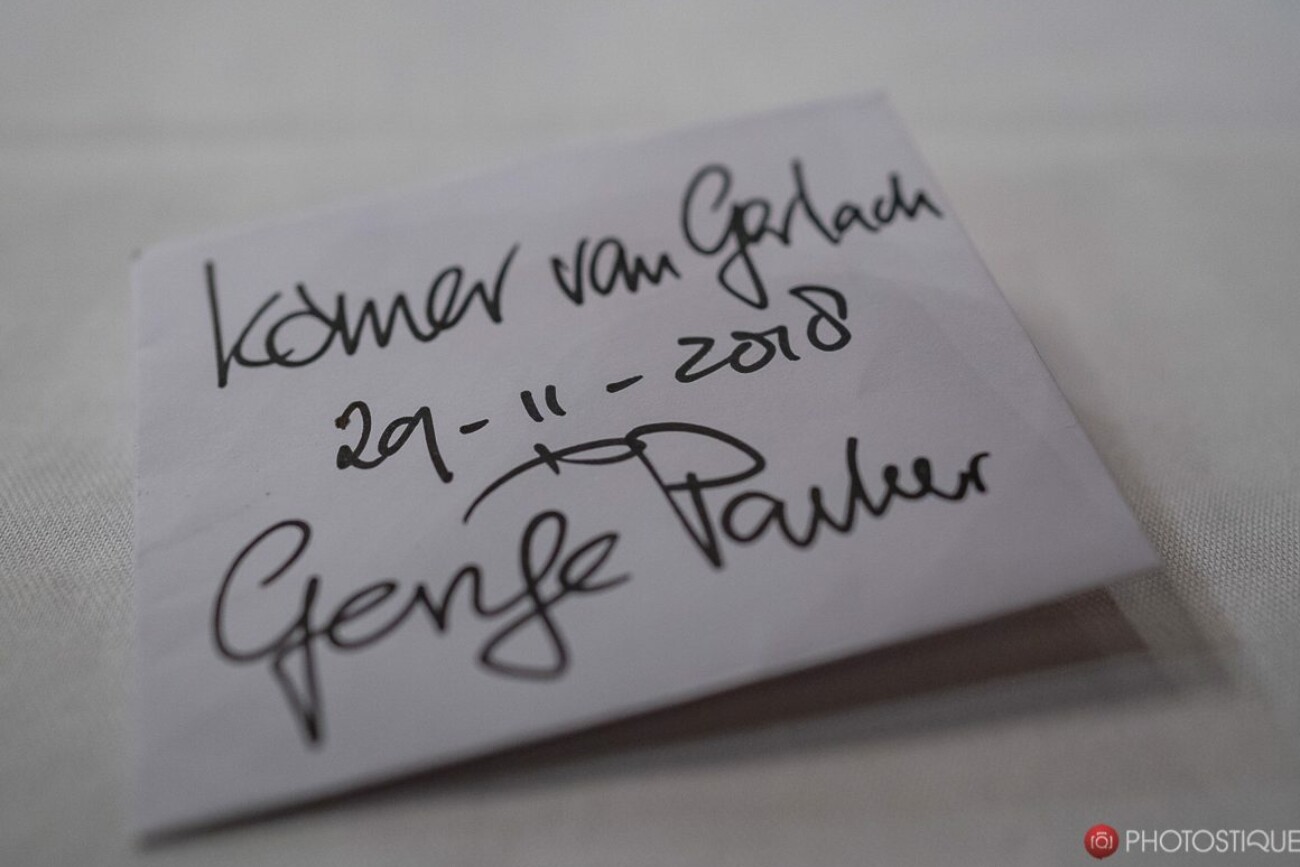 Kamer van Gerlach
29-11-2018
George Parker
PHOTOSTIQUE